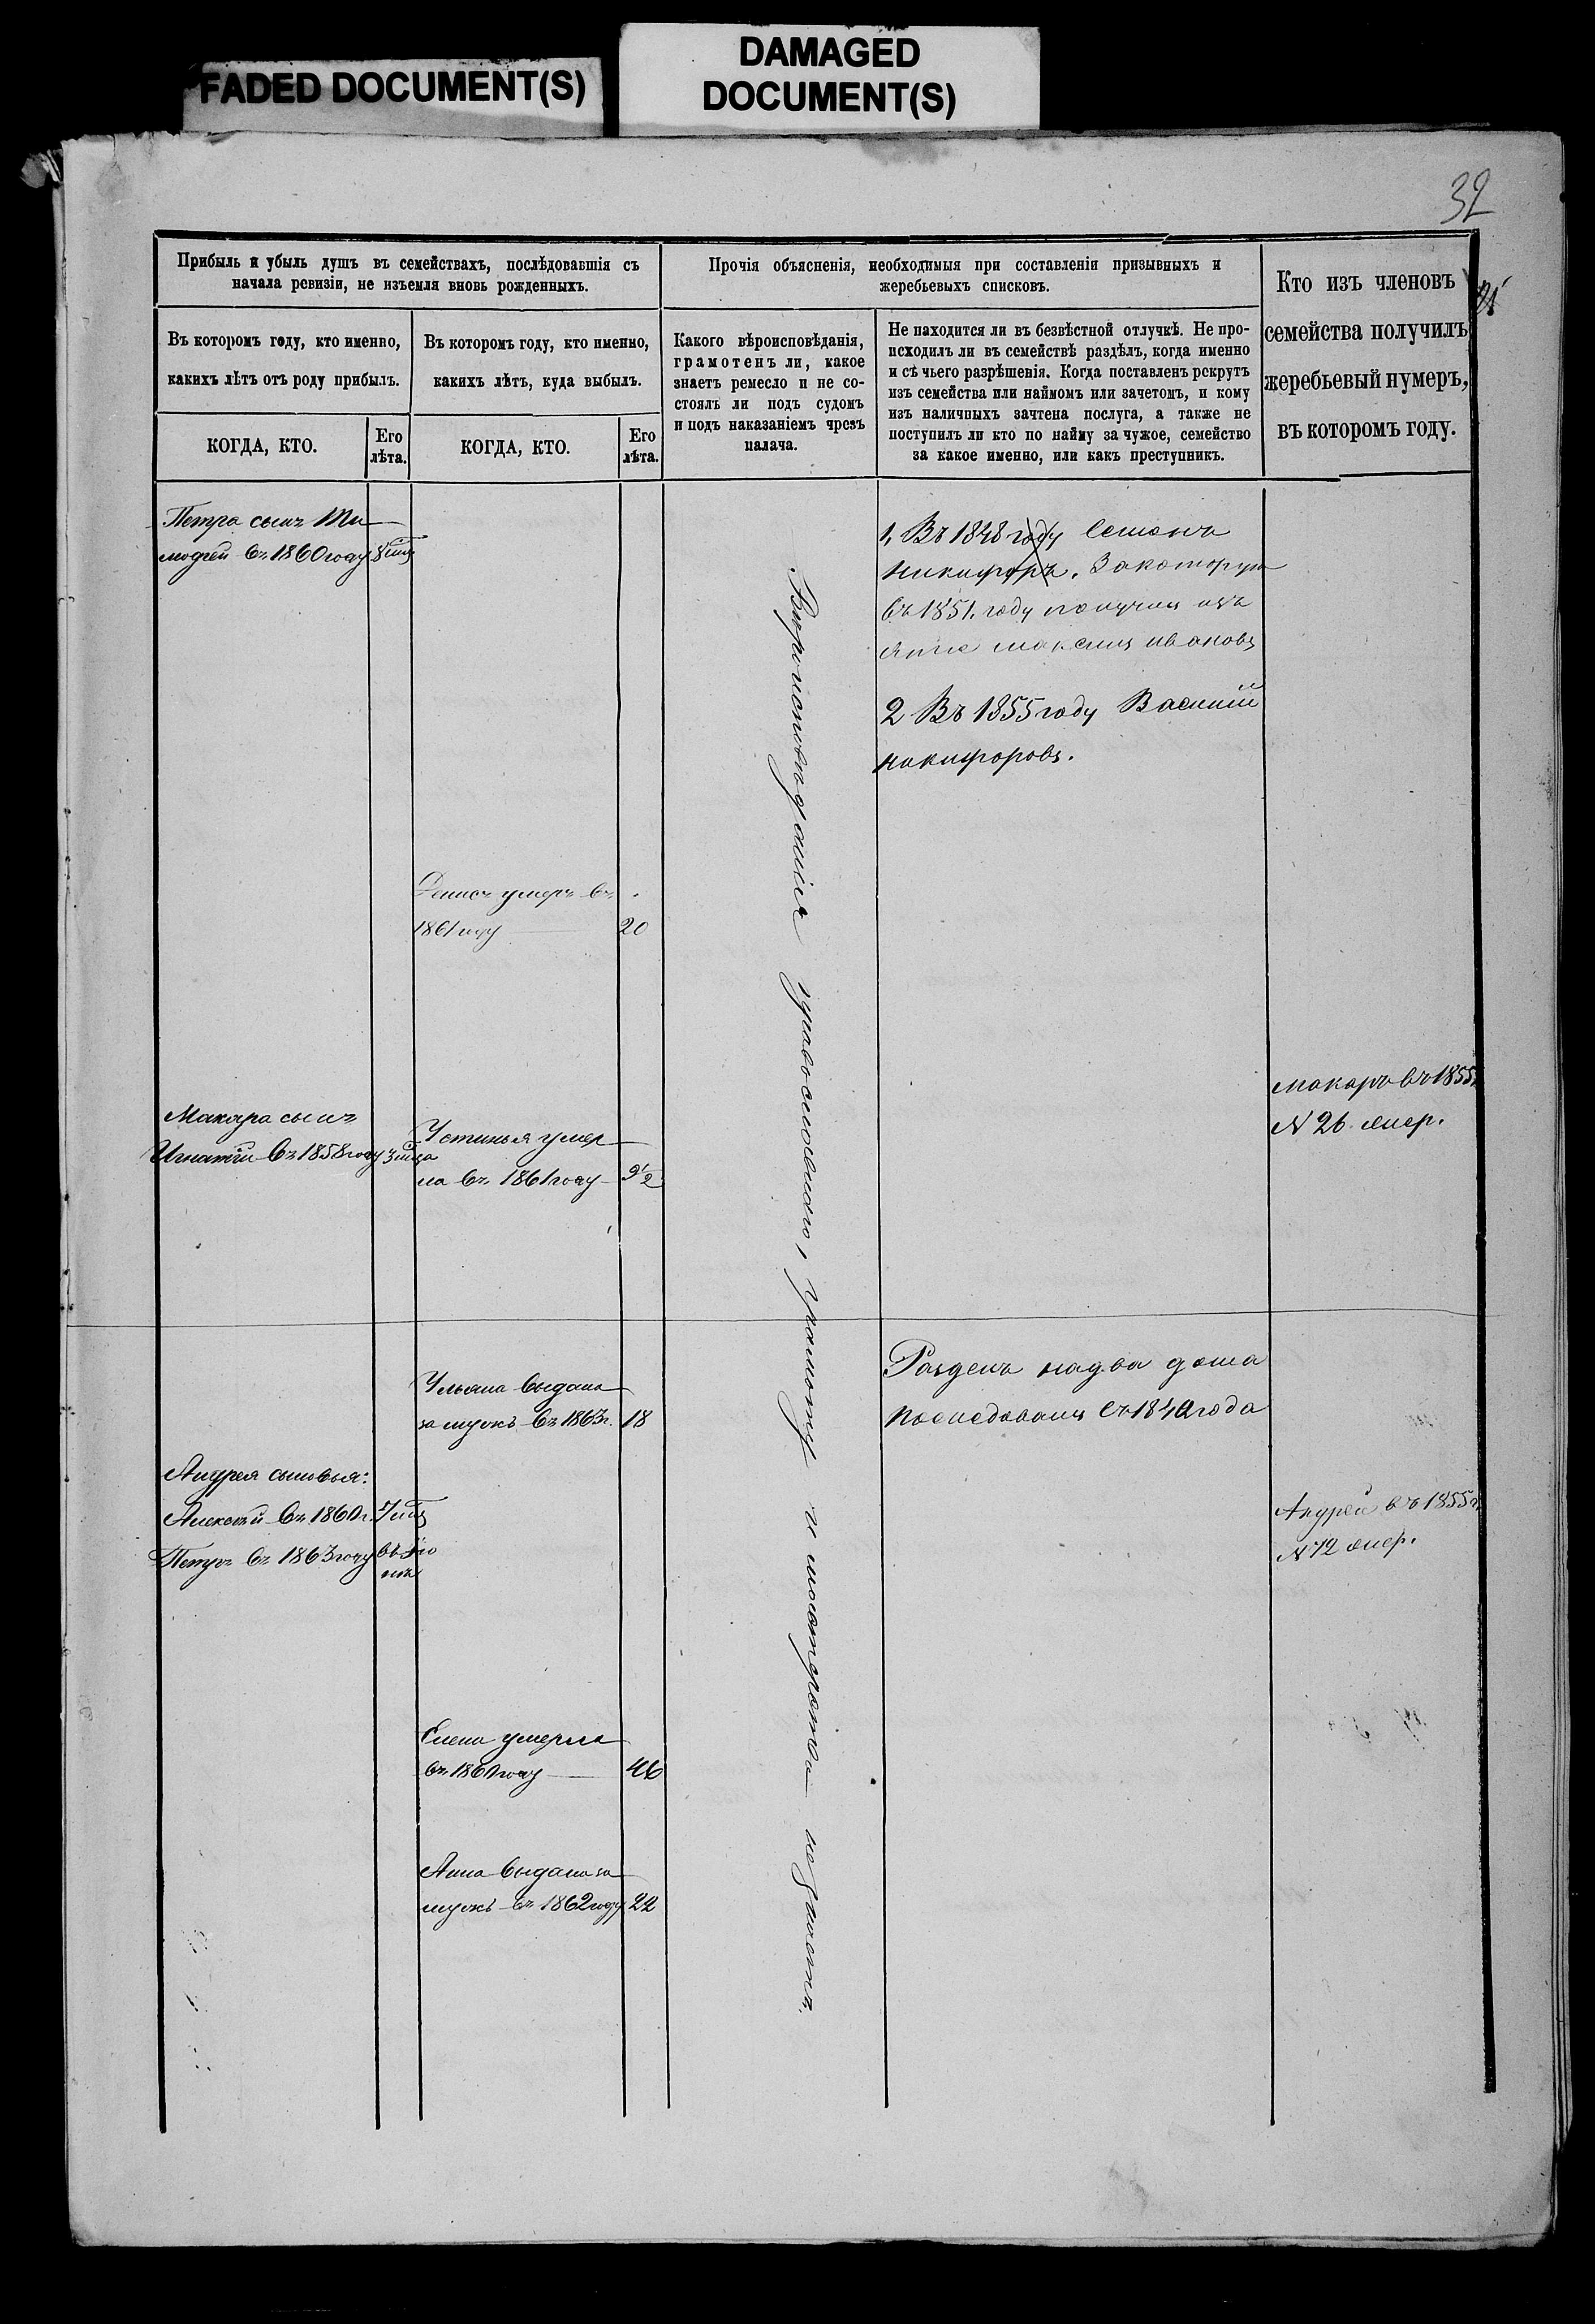 FADED DOCUMENT(S)
DAMAGED
DOCUMENT(S)
32
Прибыль и убыль душъ въ семействахъ, послѣдовавшія съ
начала ревизіи, не изъемля вновь рожденныхъ.
Прочія объясненія, необходимыя при составленіи призывныхъ и
жеребьевыхъ списковъ.
Кто изъ членовъ
семейства получилъ
жеребьевый нумеръ,
въ которомъ году.
Въ которомъ году, кто именно,
какихъ лѣтъ отъ роду прибылъ.
Въ которомъ году, кто именно,
какихъ лѣтъ, куда выбылъ.
Какого вѣроисповѣданія,
грамотенъ ли, какое
знаетъ ремесло и не со-
стоялъ ли подъ судомъ
и подъ наказаніемъ чрезъ
палача.
Не находится ли въ безвѣстной отлучкѣ. Не про-
исходилъ ли въ семействѣ раздѣлъ, когда именно
и съ чьего разрѣшенія. Когда поставленъ рекрутъ
изъ семейства или наймомъ или зачетомъ, и кому
изъ наличныхъ зачтена послуга, а также не
поступилъ ли кто по найму за чужое, семейство
за какое именно, или какъ преступникъ.
КОГДА, КТО.
Его
лѣта.
КОГДА, КТО.
Его
лѣта.
Петра сынъ Ти
мофей въ 1860 году
1, Въ 1848 году Семенъ
Никифоръ. За которую
въ 1851. году получил
Максим Иванов
2 Въ 1855 году Василій
Никифоровъ.
Вероисповѣданія православного, грамоты и мастерства не знаетъ.
Денисъ умеръ въ
1861 году 20
Макаръ въ 1855
N 26.
Макара сынъ
Игнатій въ 1858 году
Устинья умер
ла въ 1861 году 9 1/2
Ульяна выдана
за мужъ въ 1863 г. 18
Разделъ на два дома
последовалъ съ 1840 года
Андрея сыновья:
Алексѣй въ 1860 г.
Петръ въ 1863 году
Андрей въ 1855 г.
N 72
Елена умерла
въ 1861 году 46
Анна выдана за
мужъ въ 1862 году 22